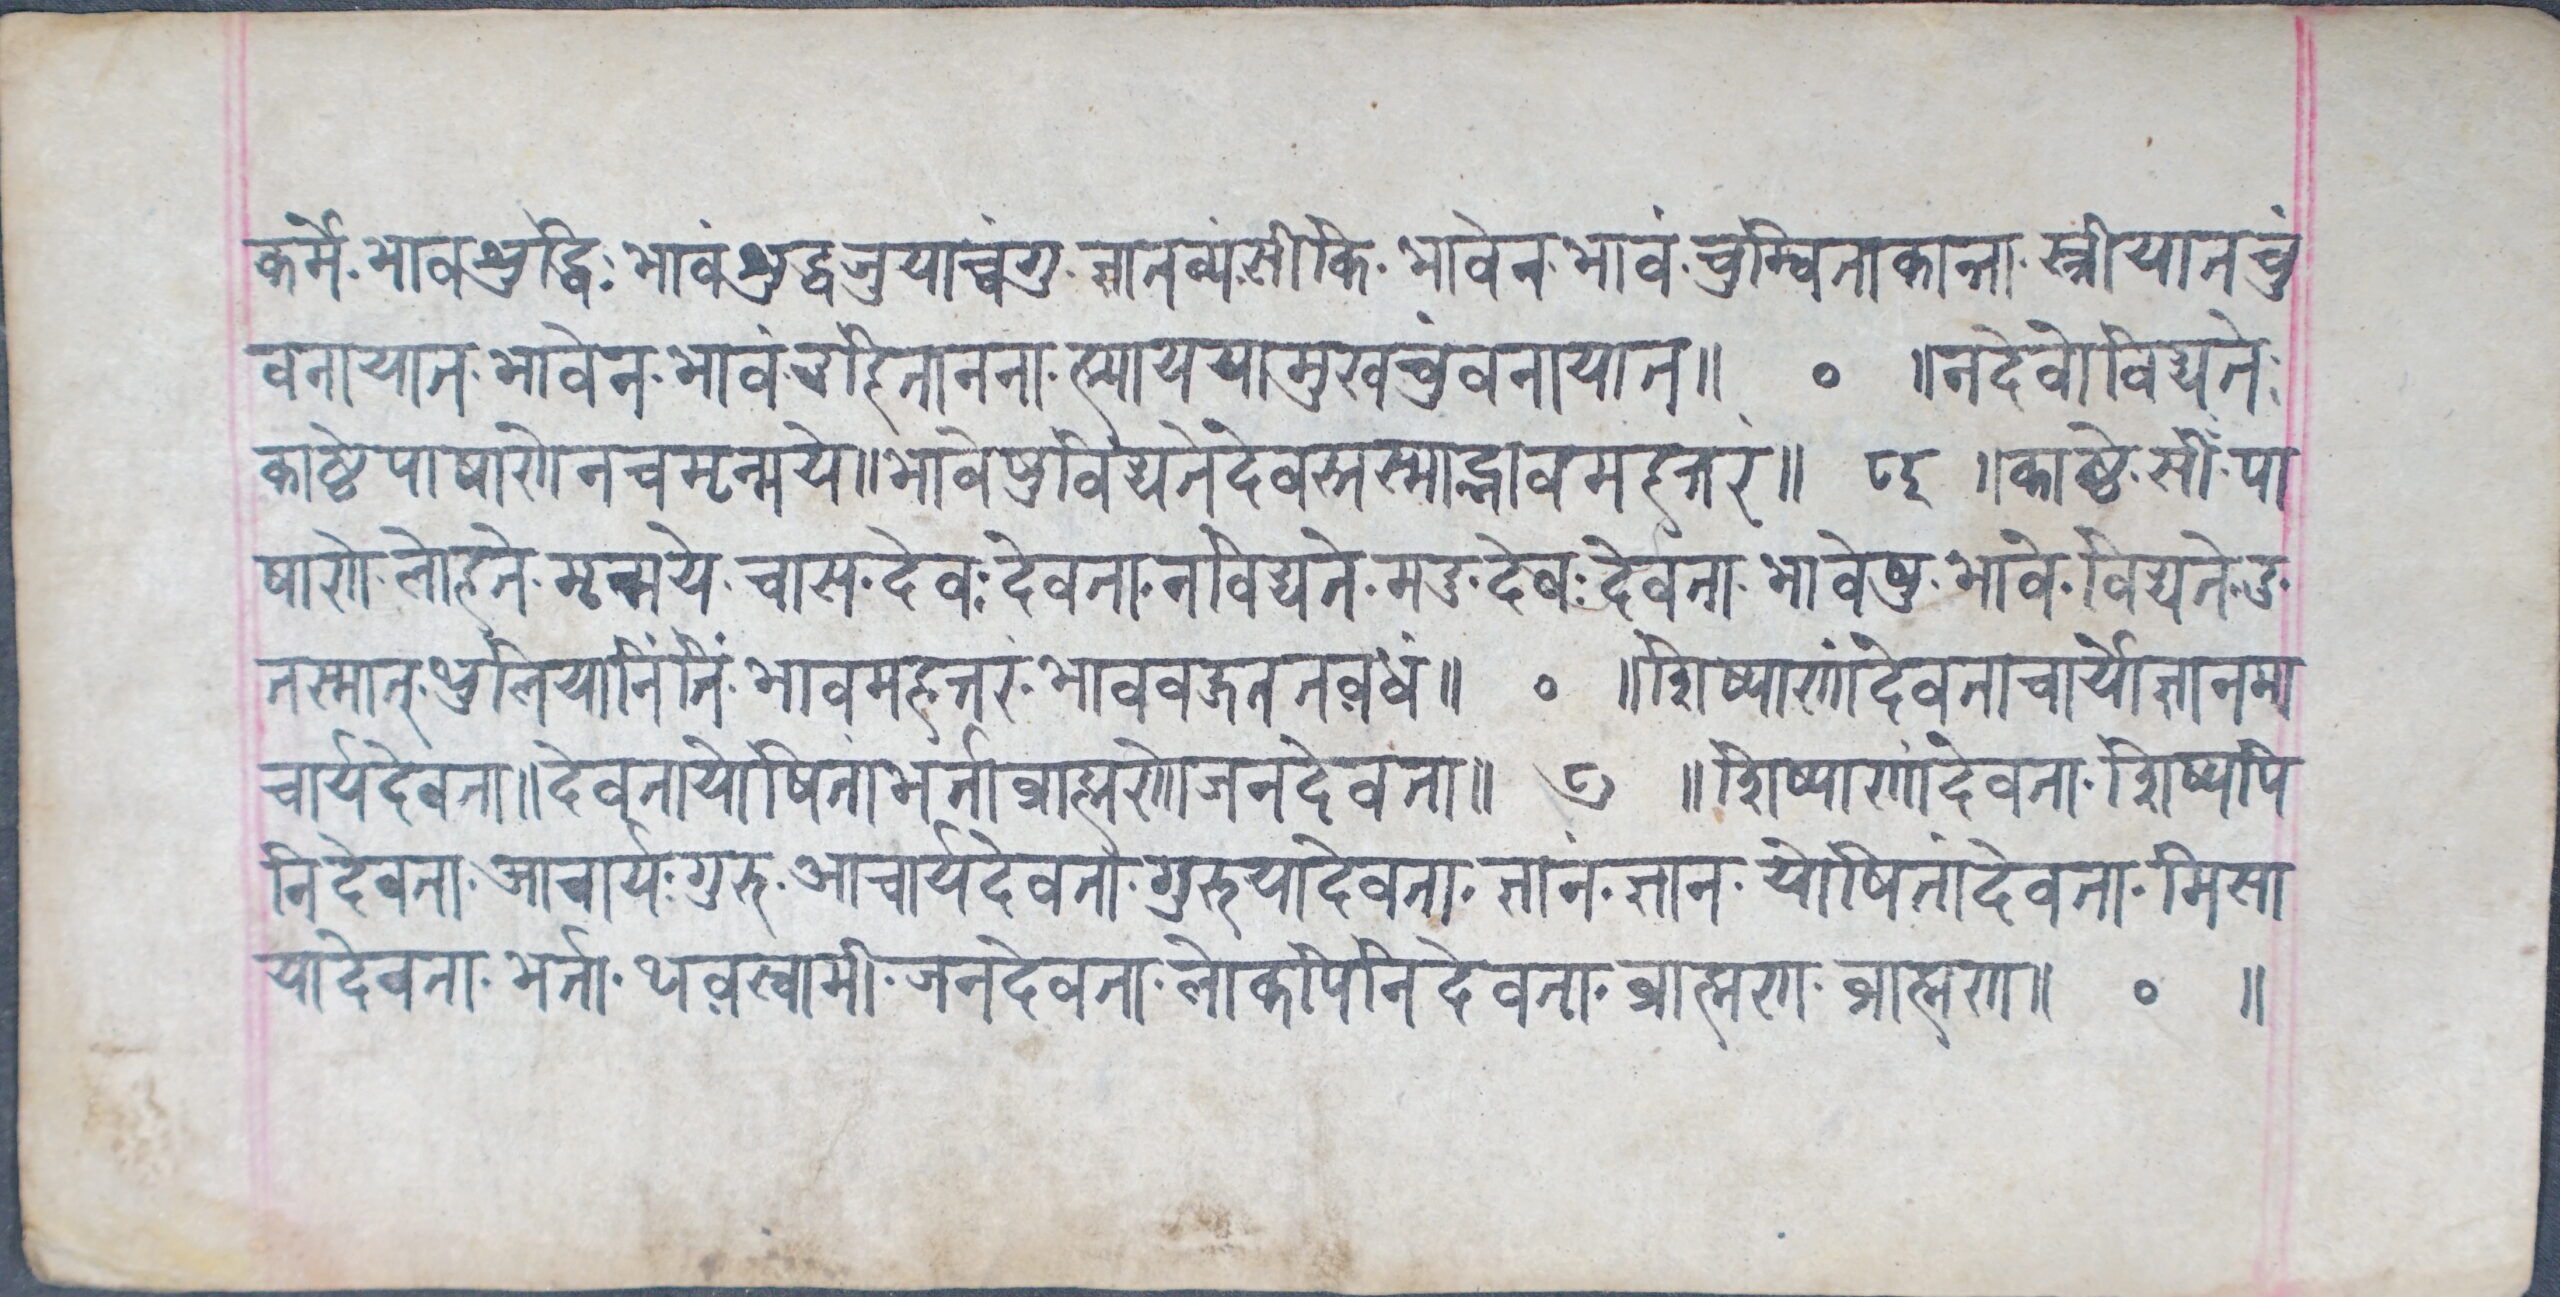 कर्मे· भावशुद्धिः भावंशुद्धजुयाच्वंगु· ज्ञानव्यं·सीकि· भावेन· भावं· चुम्विताकान्ता· स्त्रीयात चुं
वनायात· भावेन· भावं दुहितानना· ह्यायया मुखचुंवनायात॥ ० ॥न देवो विद्यते·
काष्ठे पाषाणे न च मृन्मये॥भावेषु विद्यते देवस्तस्माद्भाव महत्तरं॥ ८६ ॥काष्ठे· सीं· पा
षाणे· लोहते· मृन्मये· चास· देवः देवता· न विद्यते· मदु· देवः देवता· भावेषु· भावे· विद्यते· दु·
तस्मात्· थुलियानिंतिं· भावमहत्तरं· भाववजतनव़धं॥ ० ॥शिष्याणां देवताचार्यो ज्ञानमा
चार्यदेवता॥देवतायोषितां भर्ता ब्राह्मणो जनदेवता॥ ८७ ॥शिष्याणां देवता· शिष्यपि
निदेवता· आचार्यः गुरु· आचार्यदेवता· गुरुयादेवता· ज्ञानं· ज्ञान· योषितां देवता· मिसा
यादेवता· भर्ता· थव़स्वामी· जनदेवता· लोकपिनि देवता· ब्राह्मण· ब्राह्मण॥ ० ॥